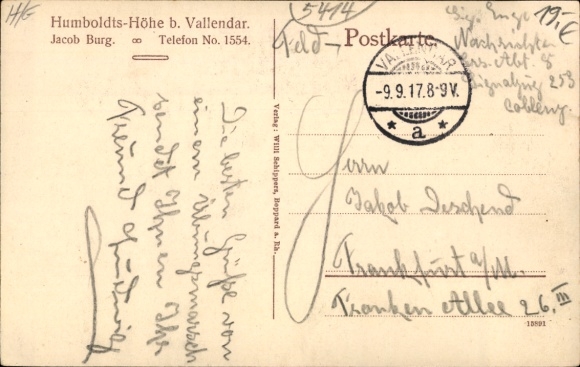 H/G
5414
19,-€
Humboldts-Höhe b. Vallendar.
Jacob Burg. ∞ Telefon No. 1554.
Feld-
Postkarte
VALLENDAR
-9.9.17.8-9V.
* a *
Nachrichten
Ers. Abt. 8
Signalzug 253
Coblenz.
Die besten Grüße von
einem Übungsmarsch
sendet Ihnen Ihr
Freund Ludwig
Verlag: Willi Schippers, Boppard a. Rh.
Herrn
Jakob
Frankfurt a/M.
Franken Allee 26. III
15891